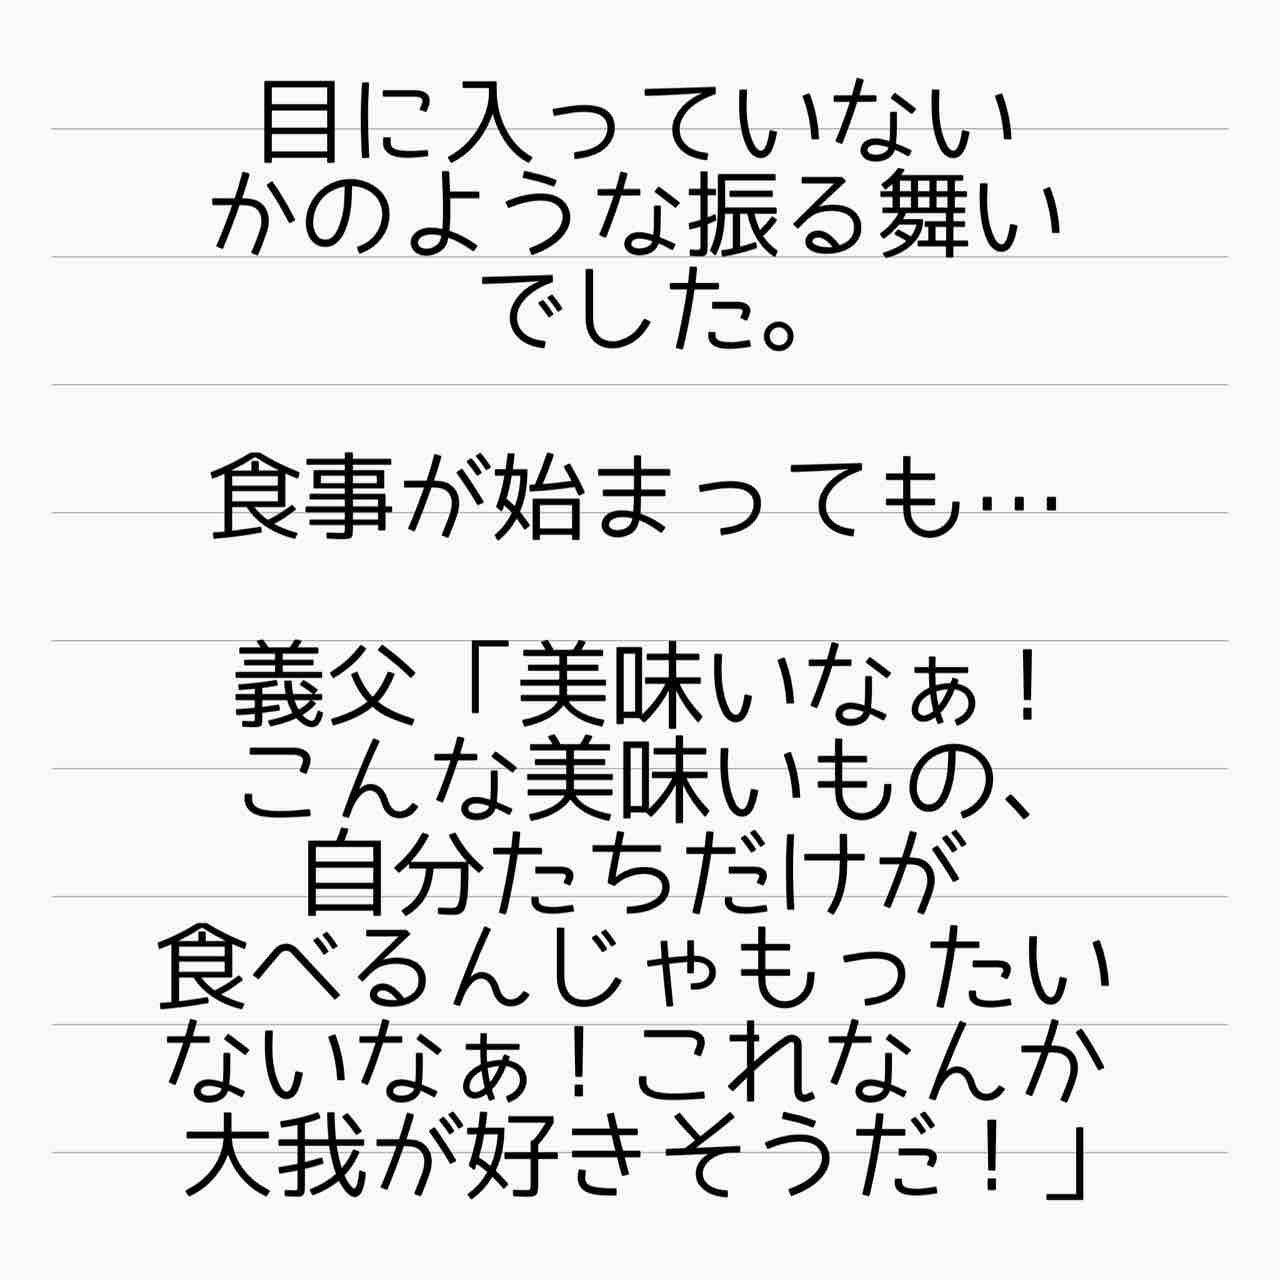 目に入っていない
かのような振る舞い
でした。
食事が始まっても…
義父「美味いなぁ！
こんな美味いもの、
自分たちだけが
食べるんじゃもったい
ないなぁ！これなんか
大我が好きそうだ！」